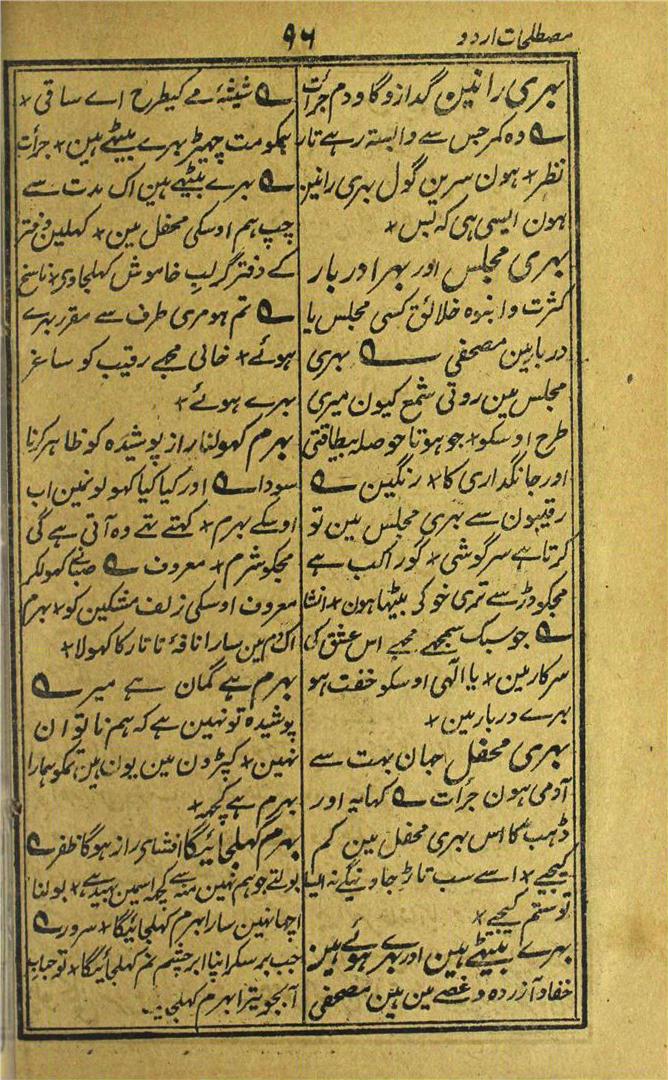 مصطلحات اردو
۹۶
بہری رانین گدازو گاو دم جرأت
ے وہ کمر جس سے وابستہ رہے تار
نظر٭ ہون سرین گول بہری رانین
ہون ایسی ہی کہ بس٭
بہری مجلس اور بہرا دربار
کثرت و انبوہ خلائق کسی مجلس یا
دربارمین مصحفی ے بہری
مجلس مین روتی شمع کیون میری
طرح اوسکو٭ جو ہوتا حوصلہ بیطاقتی
اور جانگدازی کا٭ رنگین ے
رقیبون سے بہری مجلس مین تو
کرتا ہے سرگوشی٭ کور اکب ہے
مجکو ڈر سے تمری خو کی بیٹہا ہون٭ انشا
ے جو سبک سمجھے مجھے اس عشق کی
سرکارمین٭ یا الٰہی اوسکو خفت ہو
بہرے دربارمین٭
بہری محفل جہان بہت سے
آدمی ہون جرأت ے کہا یہ اور
ڈہب کا اس بہری محفل مین کم
کیجے٭ اسے سب تاڑ جاوینگے نہ ایسا
تو ستم کیجے٭
بہرے بیٹہے ہین اور بہرے ہوئے ہین
خفا و آزردہ و غصے مین ہین مصحفی
ے شیشۂ مے کیطرح اے ساقی٭
ہمکو مت چہیڑ بہرے بیٹہے ہین٭ جرأت
ے بہرے بیٹہے ہین اک مدت سے
چپ ہم اوسکی محفل مین٭ کہلین دفتر
کے دفتر گر لب خاموش کہلجاوی٭ ناسخ
ے تم ہو مری طرف سے مقرر بہرے
ہوئے٭ خالی مجھے رقیب کو ساغر
بہرے ہوئے٭
بہرم کہولنا راز پوشیدہ کو ظاہر کرنا
سودا ے اور کیا کیا کہولو نمین اب
اوسکے بہرم٭ کہتے تہے وہ آتی ہے گی
مجکو شرم٭ معروف ے صبا نے کہولکر
معروف اوسکی زلف مشکین کو٭ بہرم
اک دم مین سارا نافۂ تاتار کا کہولا٭
بہرم ہے گمان ہے میر ے
پوشیدہ تو نہین ہے کہ ہم ناتوان
نہین٭ کپڑون مین یون ہین تمکو ہمارا
بہرم ہے کچہہ٭
بہرم کہلجائیگا افشای راز ہوگا ظفر ے
بولتے جو ہم نہین منہ سے کچہہ اسمین بہید ہے٭ بولنا
اچہا نہین سارا بہرم کہلجائیگا٭ سرور ے
جب برسکر اپنا ابر چشم نم کہلجائیگا٭ تو حباب
آبجو تیرا بہرم کہلجای